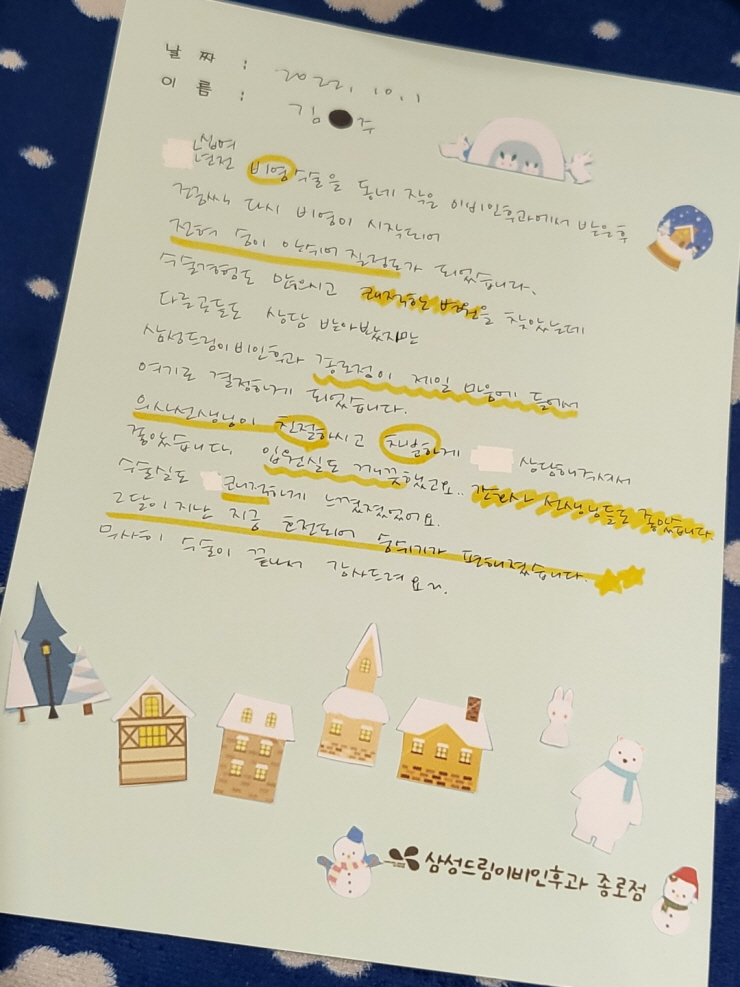 날 짜 : 2022. 10. 1
이 름 : 김 주
십여
년전 비염 수술을 동네 작은 이비인후과에서 받은후
다시 비염이 시작되어
전혀 숨이 안쉬어 질정도가 되었습니다.
수술경험도 많으시고 쾌적하는 병원을 찾았는데
다른곳들도 상담 받아봤지만
삼성드림이비인후과 종로점이 제일 마음에 들어서
여기로 결정하게 되었습니다.
의사선생님이 친절하시고 차분하게 상담해주셔서
좋았습니다. 입원실도 깨끗했고요.. 간호사 선생님들도 좋았습니다
수술실도 쾌적하게 느껴졌었어요.
2달이 지난 지금 호전되어 숨쉬기가 편해졌습니다.
무사히 수술이 끝나서 감사드려요~.
삼성드림이비인후과 종로점